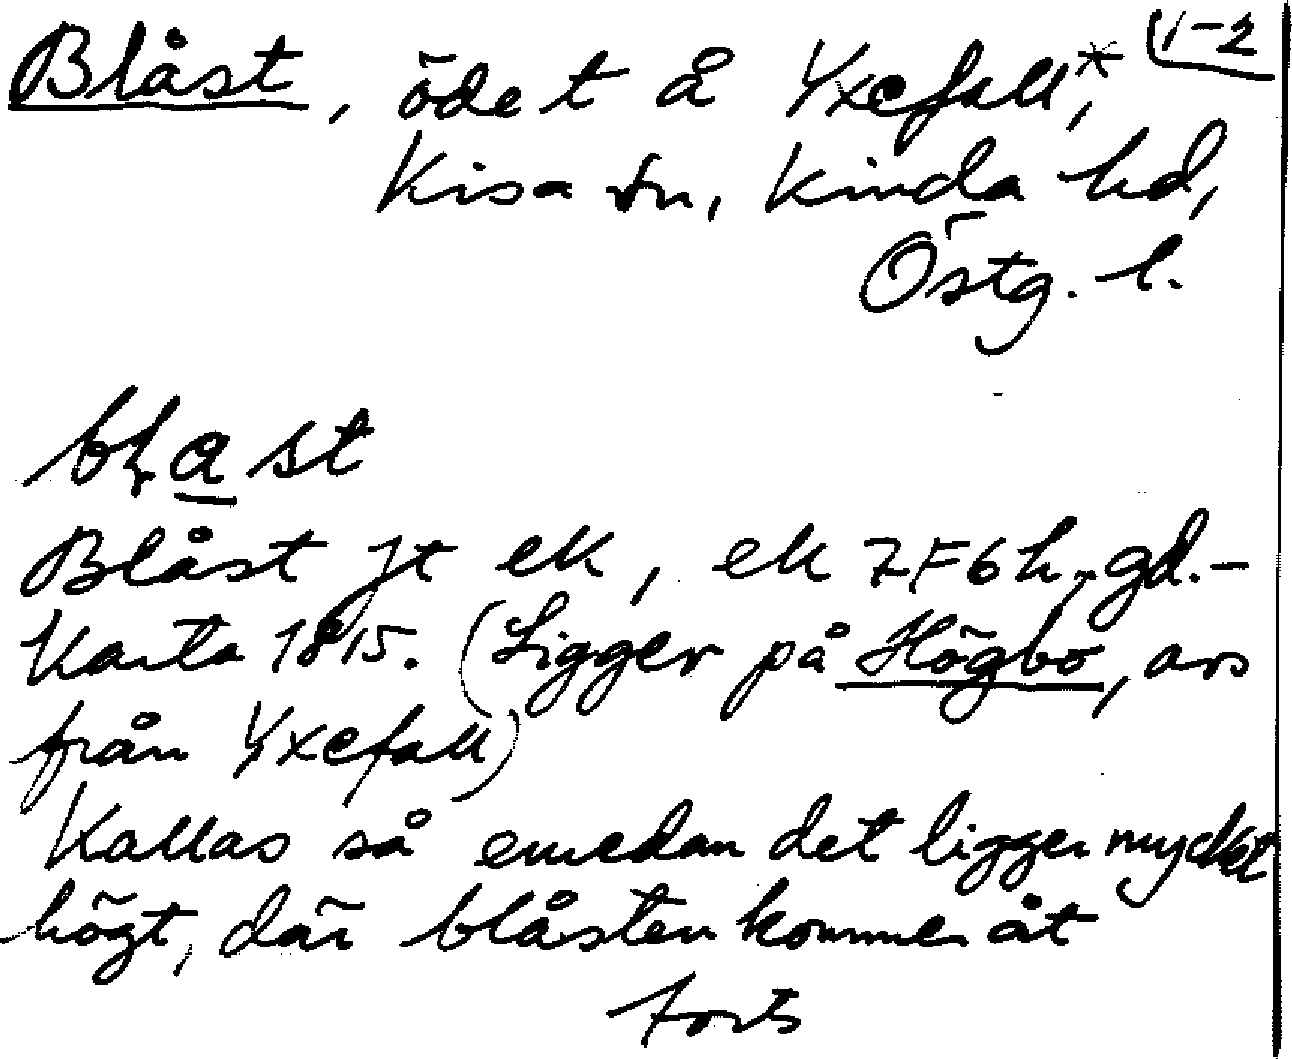 1-2
Blåst, ödet å Yxefall*,
Kisa sn, Kinda hd,
Östg. l.
Blåst Jt ek, ek 7F6h, gd.-
Karta 1815. (Ligger på Högbo, avs
från Yxefall)
Kallas så emedan det ligger mycket
högt, där blåsten kommer åt
forts